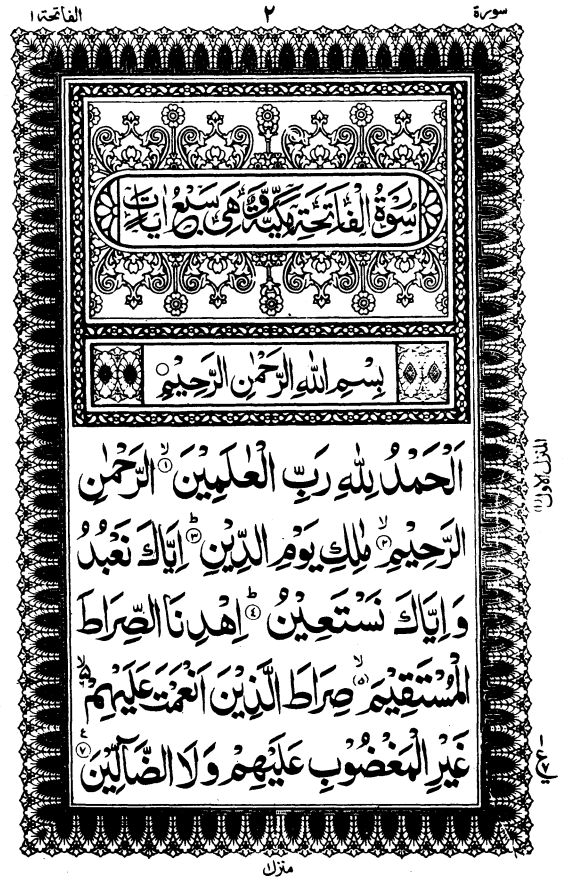 سورة ٢ الفاتحة ١
سُوْرَةُ الْفَاتِحَةِ مَكِّيَّةٌ وَّهِيَ سَبْعُ اٰيَاتٍ
بِسْمِ اللّٰهِ الرَّحْمٰنِ الرَّحِيْمِ
اَلْحَمْدُ لِلّٰهِ رَبِّ الْعٰلَمِيْنَ ۙ﴿١﴾ الرَّحْمٰنِ
الرَّحِيْمِ ۙ﴿٢﴾ مٰلِكِ يَوْمِ الدِّيْنِ ؕ﴿٣﴾ اِيَّاكَ نَعْبُدُ
وَاِيَّاكَ نَسْتَعِيْنُ ؕ﴿٤﴾ اِهْدِنَا الصِّرَاطَ
الْمُسْتَقِيْمَ ۙ﴿٥﴾ صِرَاطَ الَّذِيْنَ اَنْعَمْتَ عَلَيْهِمْ ۙ﴿٦﴾
غَيْرِ الْمَغْضُوْبِ عَلَيْهِمْ وَلَا الضَّآلِّيْنَ ﴿٧﴾
المنزل الاول (١)
منزل ١